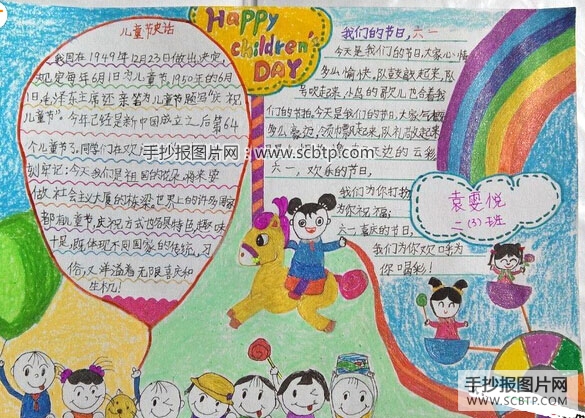 儿童节史话
我国在1949年12月23日做出决定,
规定每年6月1日为儿童节,1950年的6月
1日,毛泽东主席还亲笔为儿童节题写"庆祝
儿童节"。今年已经是新中国成立之后第64
个儿童节了,同学们在欢
到牢记:今天我们是祖国的花朵,将来要
做社会主义大厦的栋梁,世界上的许多国家
都有儿童节,庆祝方式也各具特色,趣味
十足,既体现不同国家的传统,习
俗,又洋溢着无限喜庆和
生机!
Happy
children's
DAY
我们的节日,六一
今天是我们的节日,大家心情
多么愉快,队鼓敲起来,队
号吹起来,小鸟的歌儿也合着我
们的节拍,今天是我们的节日,大家气概
多么豪迈,领巾飘起来,队礼敬起来
天边的云彩
六一,欢乐的节日,
我们为你打扮
为你祝福;
六一,喜庆的节日,
我们为你欢呼,为
你喝彩!
袁雯悦
二(3)班
手抄报图片网:www.scbtp.com
手抄报图片网
WWW.SCBTP.COM